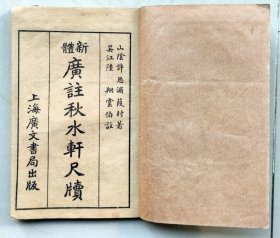 山陰許思湄葭村著
吳江陸 翔雲伯註
新體
廣註秋水軒尺牘
上海廣文書局出版